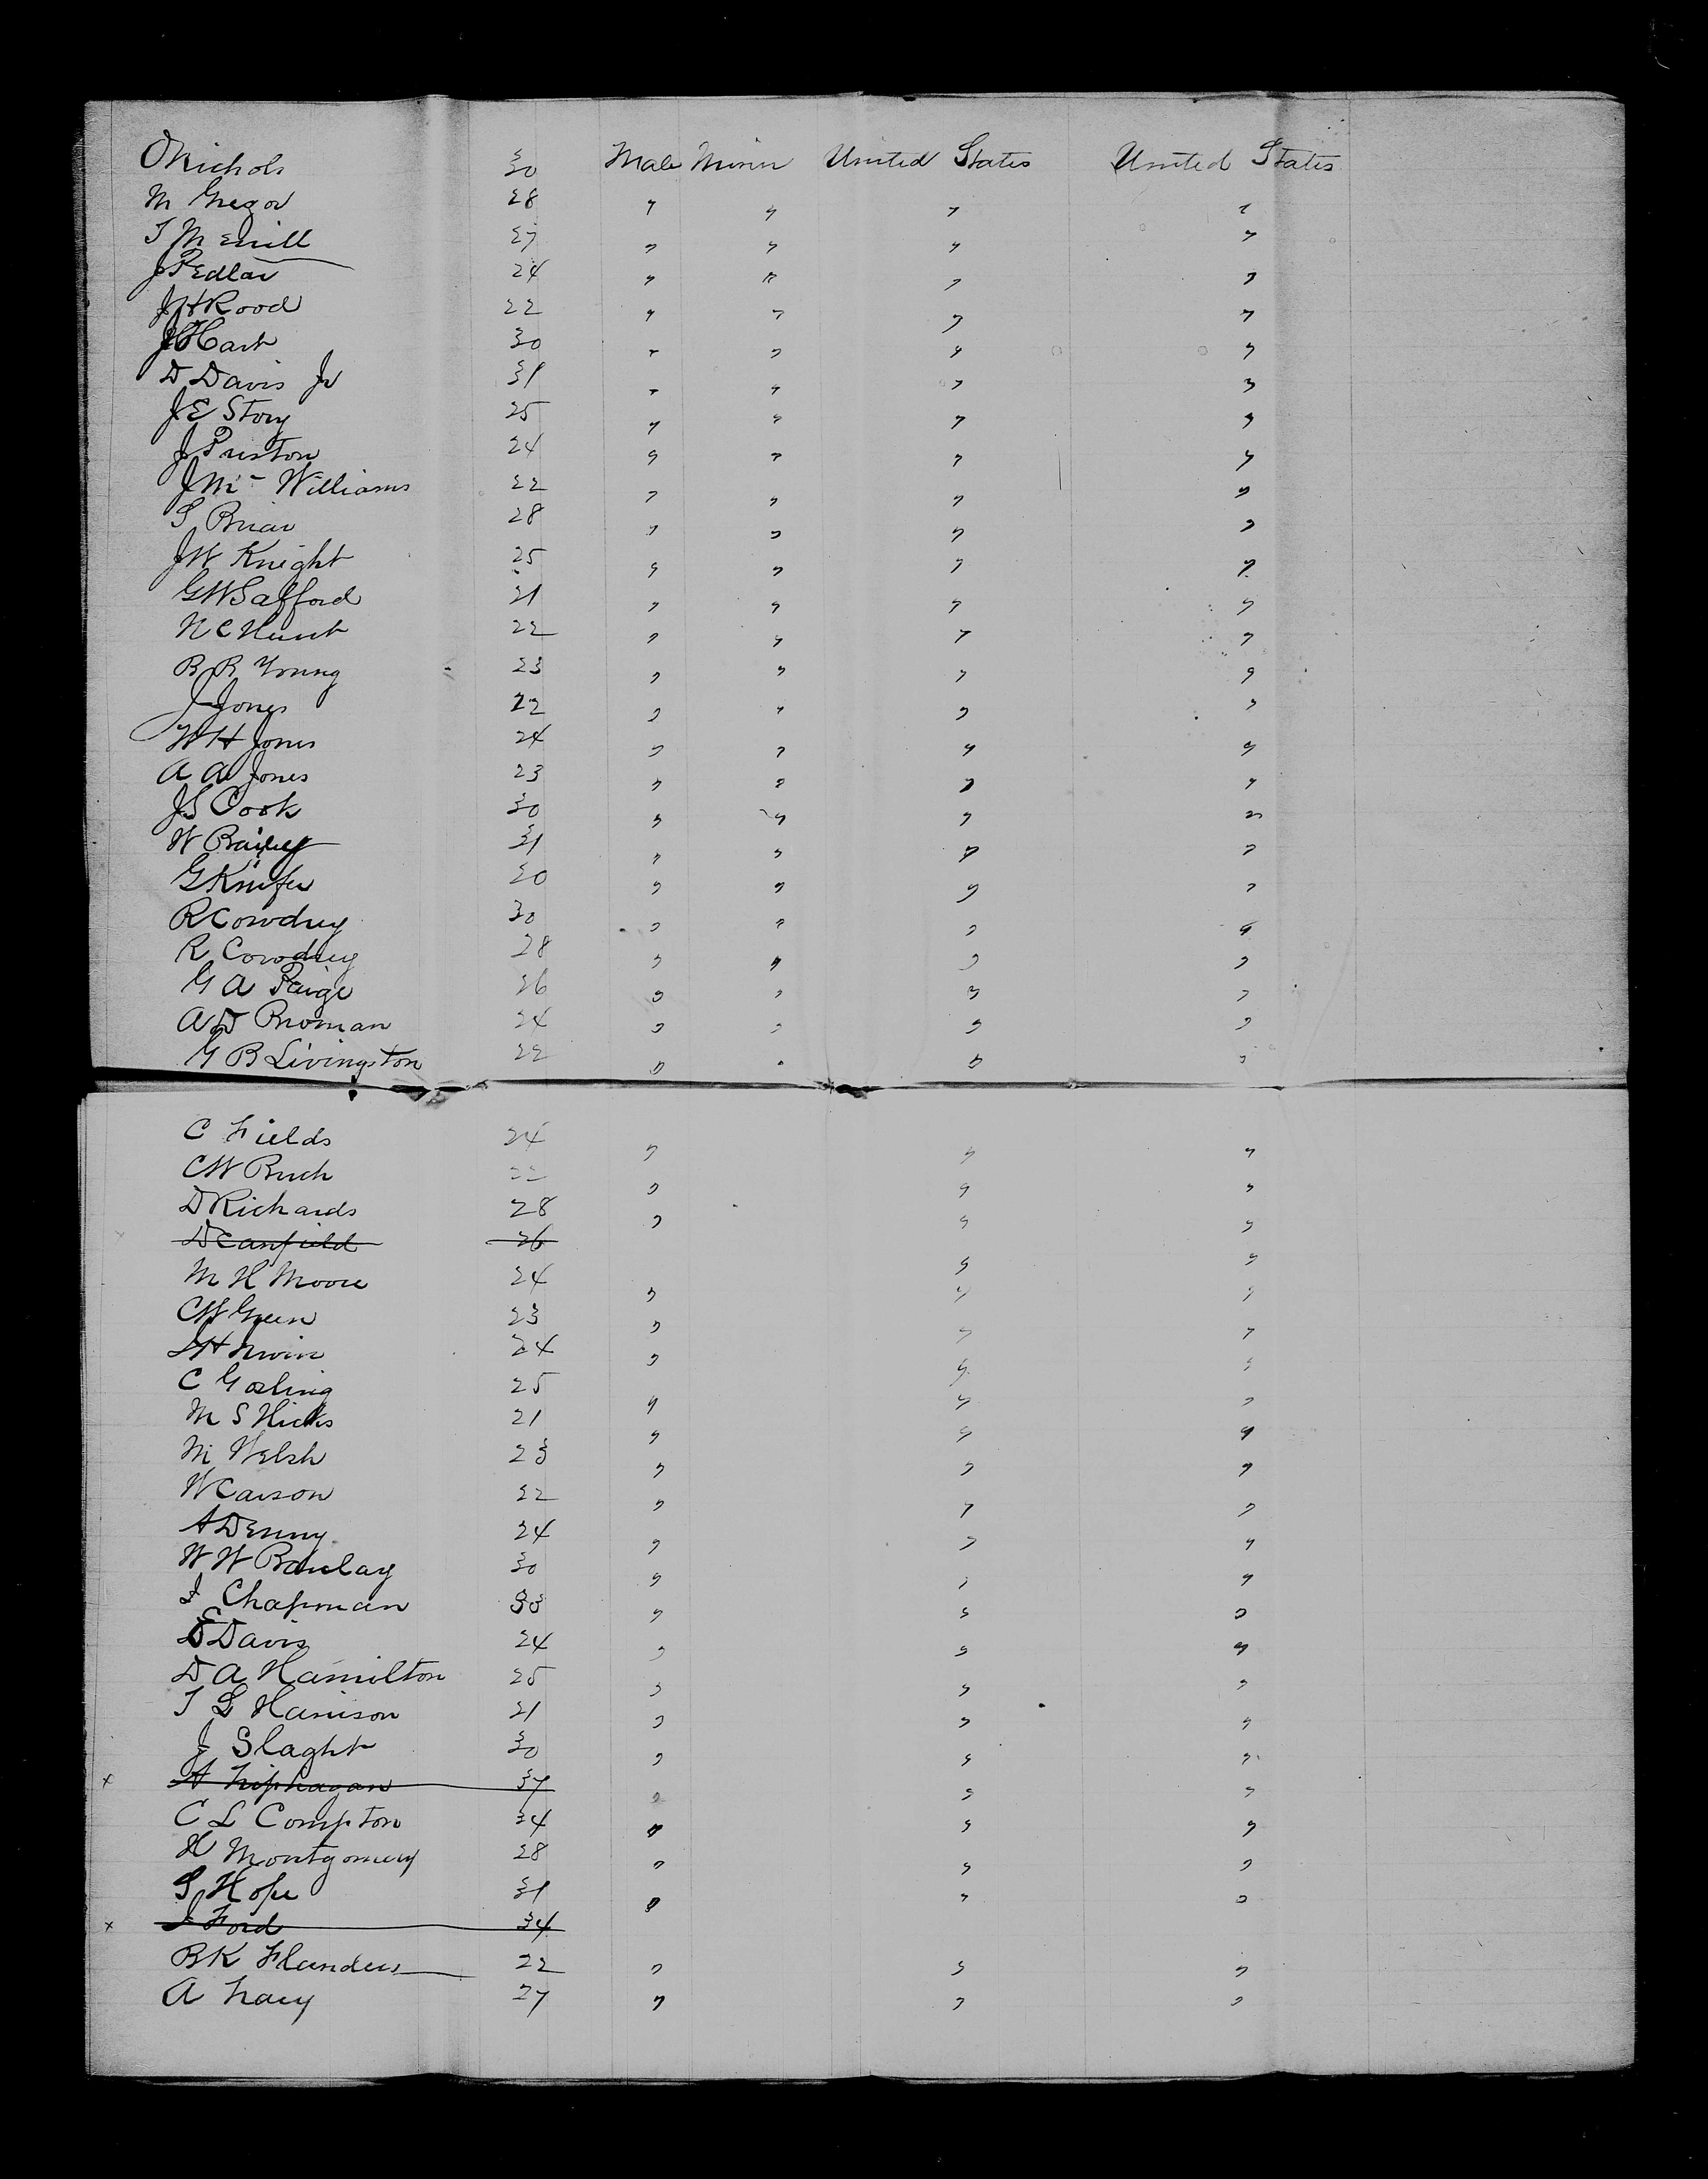 O Nichols 30 Male Miner United States United States
M Gregor 28 " " " "
T Merrill 27 " " " "
J Pedlar 24 " " " "
J H Rood 22 " " " "
J Hart 30 " " " "
D Davis Jr 31 " " " "
J E Story 25 " " " "
J Priston 24 " " " "
J Mc Williams 22 " " " "
S Briar 28 " " " "
J W Knight 25 " " " "
G W Safford 21 " " " "
N C Hunt 22 " " " "
B R Young 23 " " " "
J Jones 22 " " " "
W H Jones 24 " " " "
A A Jones 23 " " " "
J S Cook 30 " " " "
W Bailey 31 " " " "
G Knifer 20 " " " "
R Cowdrey 30 " " " "
R Cowdrey 28 " " " "
G A Paige 26 " " " "
A D Broman 24 " " " "
G B Livingston 22 " " " "
C Fields 24 " " "
C W Buch 22 " " "
D Richards 28 " " "
D Canfield 26 " "
M H Moore 24 " " "
C W Green 23 " " "
H Irwin 24 " " "
C Gosling 25 " " "
M S Hicks 21 " " "
M Welsh 23 " " "
W Carson 22 " " "
A Denny 24 " " "
W W Barclay 30 " " "
I Chapman 33 " " "
E Davis 24 " " "
D A Hamilton 25 " " "
T G Harrison 21 " " "
J Slaght 30 " " "
x A 37 " " "
C L Compton 34 " " "
H Montgomery 28 " " "
G Hope 31 " " "
x J Ford 34
B K Flanders 22 " " "
A 27 " " "